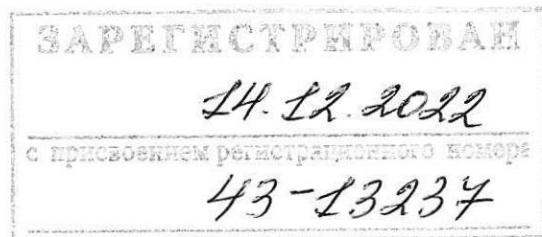 ЗАРЕГИСТРИРОВАН
14.12.2022
с присвоением регистрационного номера
43-13237